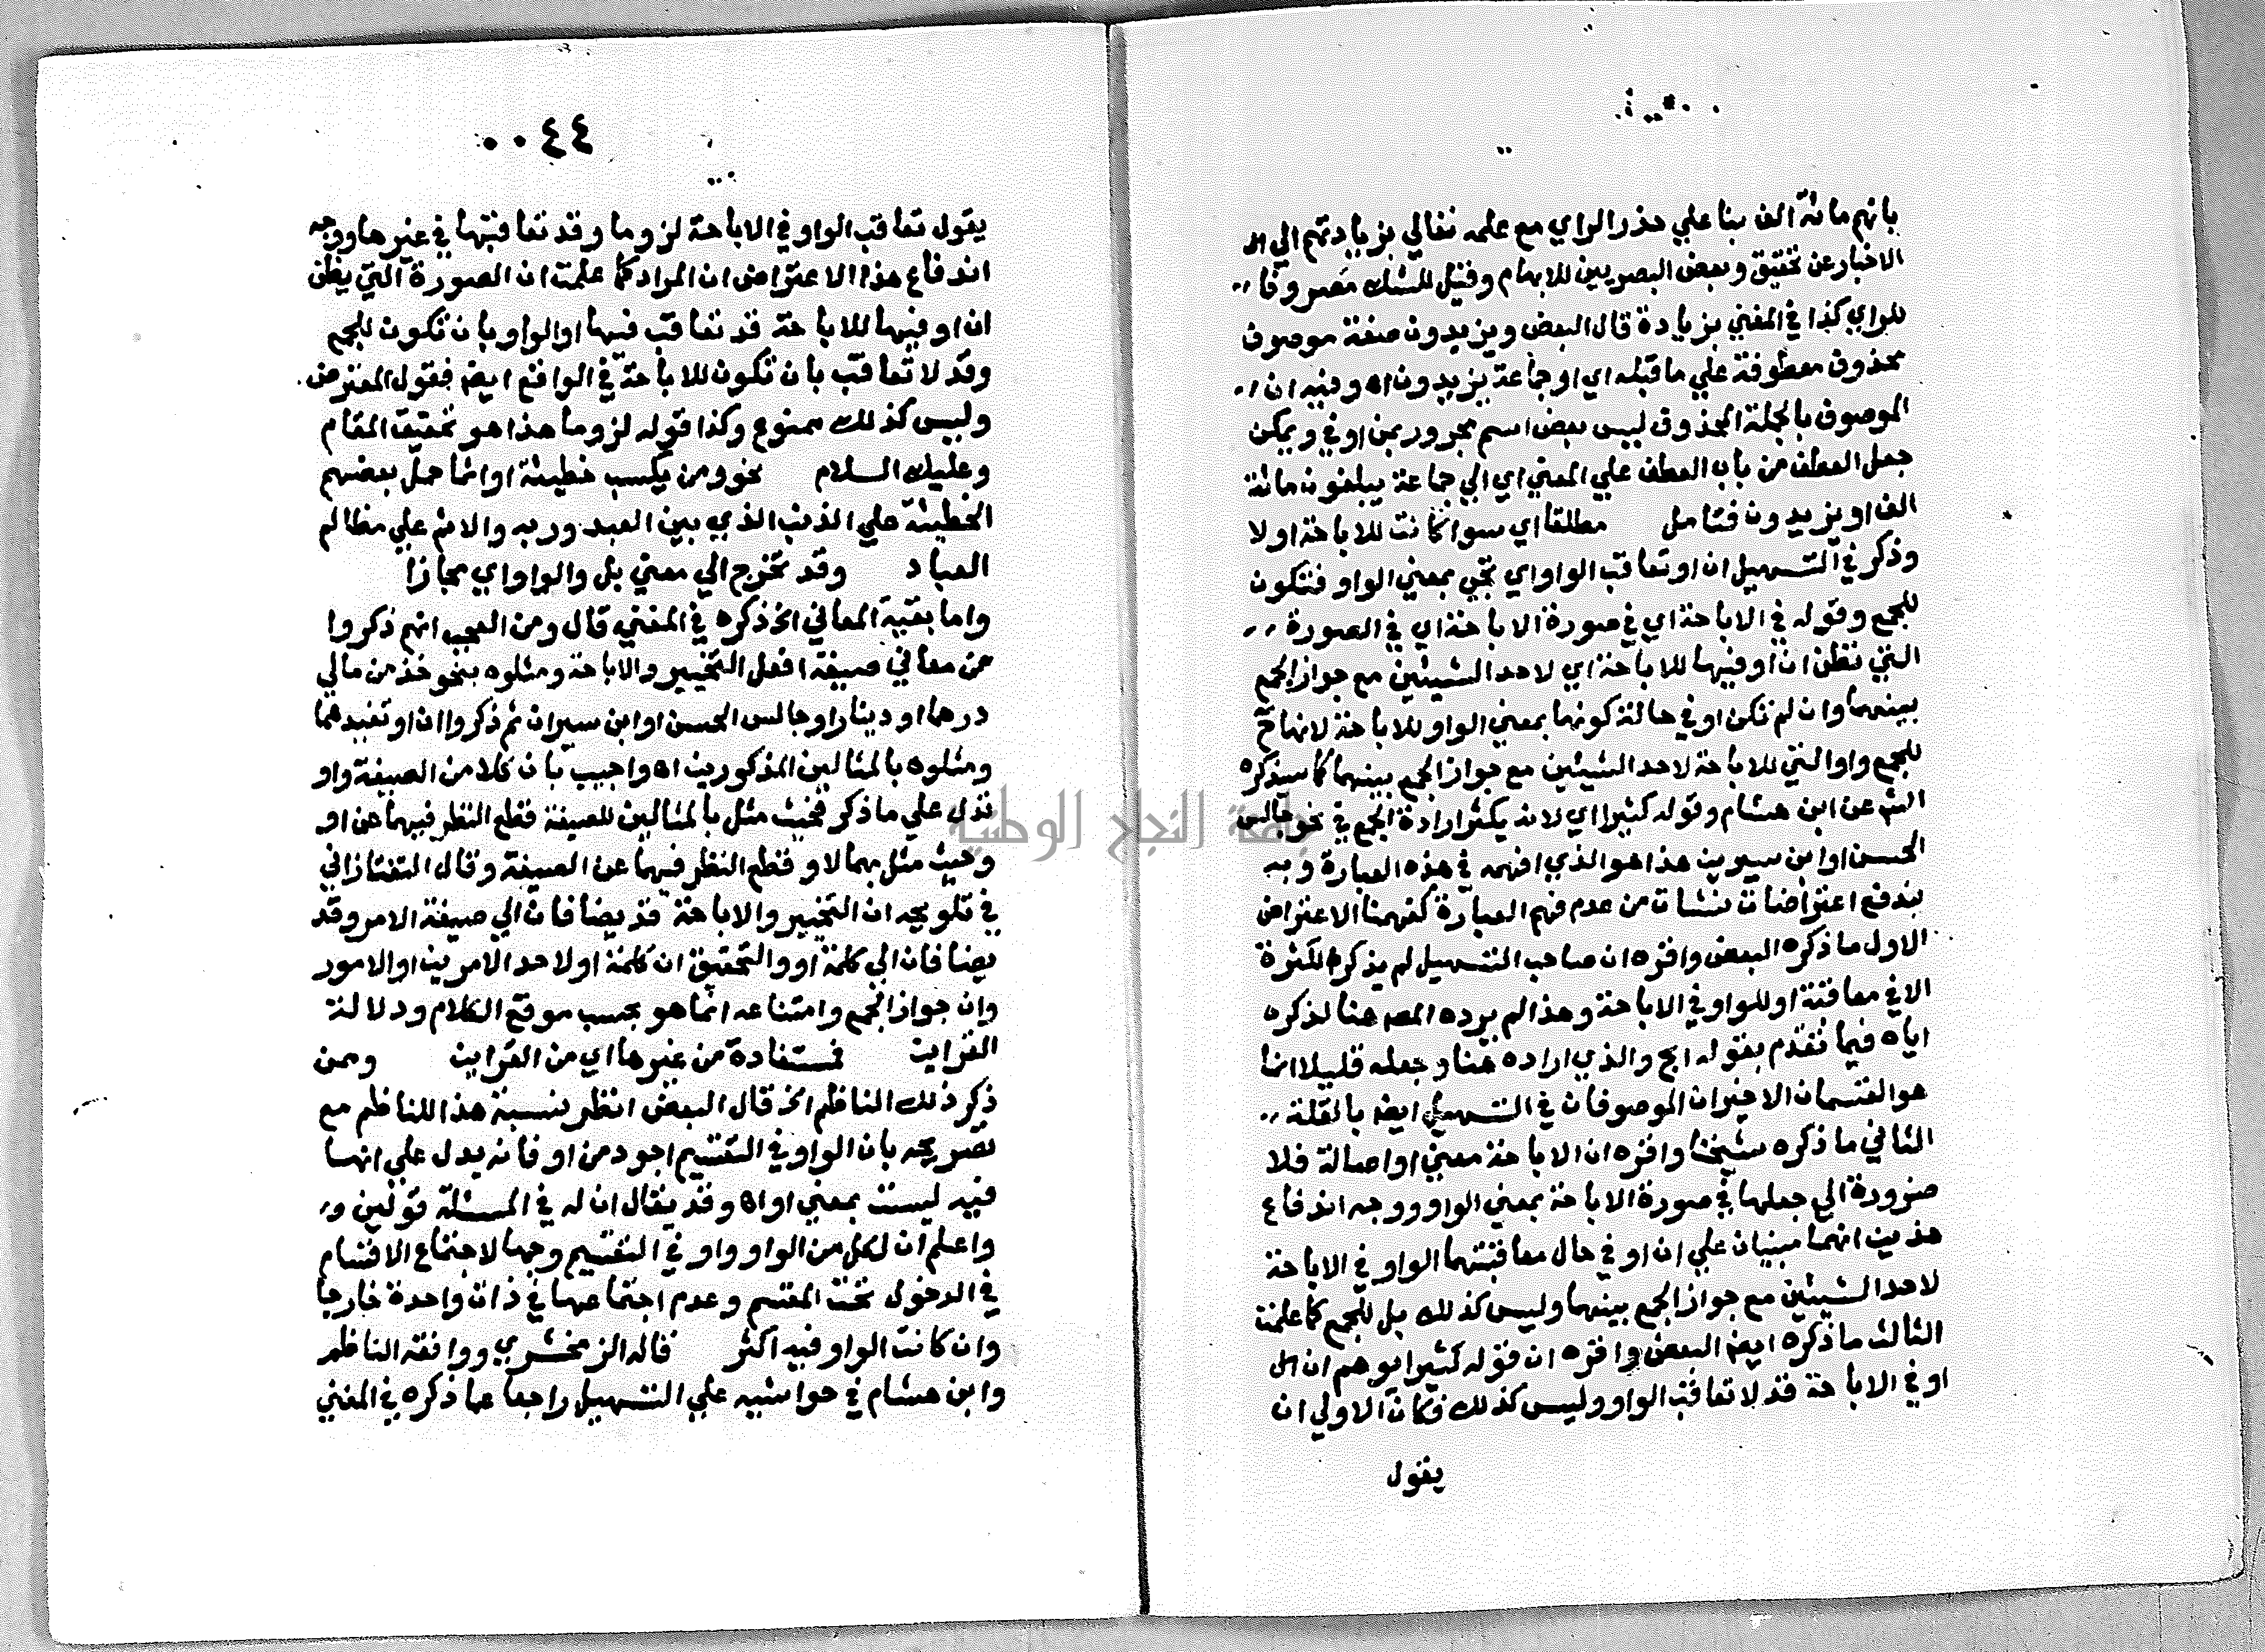 بانهم مائة الف بنا علي حذر الراي مع علمه تعالي بزيادتهم الي
الاخبار عن تحقيق وبعض البصريين للابهام وقيل للشك مصروفا
للراي كذا في المغني بزيادة قال البعض ويزيدون صفة موصوف
محذوف معطوفة علي ما قبله اي او جماعة يزيدون اه وفيه ان
الموصوف بالجملة المحذوف ليس بعض اسم مجرور بمن او في ويمكن
جعل العطف من باب العطف علي المعني اي الي جماعة يبلغون مائة
الف او يزيدون فتامل مطلقا اي سوا كانت للاباحة اولا
وذكر في التسهيل ان او تعاقب الواو اي تجي بمعني الواو فتكون
للجمع وقوله في الاباحة اي في صورة الاباحة اي في الصورة
التي تظن ان او فيها للاباحة اي لاحد الشيئين مع جواز الجمع
بينهما وان لم تكن او في حالة كونها بمعني الواو للاباحة لانها ح
للجمع واو التي للاباحة لاحد الشيئين مع جواز الجمع بينهما كما سيذكره
الشم عن ابن هشام وقوله كثيرا اي لانه يكثر ارادة الجمع في نحو جالس
الحسن او ابن سيرين هذا هو الذي افهمه في هذه العبارة وبه
يندفع اعتراضات نشات من عدم فهم العبارة كفهمنا الاعتراض
الاول ما ذكره البعض واقره ان صاحب التسهيل لم يذكر الكثرة
الا في معاقبة او للواو في الاباحة وهذا لم يرده المص هنا لذكره
اياه فيما تقدم بقوله ابح والذي اراده هنا وجعله قليلا انما
هو القسمان الاخيران الموصوفان في التسهيل ايض بالقلة
الثاني ما ذكره شيخنا واقره ان الاباحة معني او اصالة فلا
ضرورة الي جعلها في صورة الاباحة بمعني الواو ووجه اندفاع
هذين انهما مبنيان علي ان او في حال معاقبتها الواو في الاباحة
لاحد الشيئين مع جواز الجمع بينهما وليس كذلك بل للجمع كما علمت
الثالث ما ذكره ايض البعض واقره ان قوله كثيرا يوهم ان
او في الاباحة قد لا تعاقب الواو وليس كذلك فكان الاولي ان
يقول
٤٤
يقول تعاقب الواو في الاباحة لزوما وقد تعاقبها في غيرها ووجه
اندفاع هذا الاعتراض ان المراد كما علمت ان الصورة التي يظن
ان او فيها للاباحة قد تعاقب فيها او الواو بان تكون للجمع
وقد لا تعاقب بان تكون للاباحة في الواقع ايض فقول المعترض
وليس كذلك ممنوع وكذا قوله لزوما هذا هو تحقيق المقام
وعليك السلام نحو ومن يكسب خطيئة او اثما حمل بعضهم
الخطيئة علي الذنب الذي بين العبد وربه والاثم علي مظالم
العباد وقد تخرج الي معني بل والواو اي مجازا
واما بقية المعاني الخ ذكره في المغني قال ومن العجب انهم ذكروا
من معاني صيغة افعل التخيير والاباحة ومثلوه بنحو خذ من مالي
درهما او دينارا وجالس الحسن او ابن سيران ثم ذكروا ان او تفيدهما
ومثلوه بالمثالين المذكورين اه واجيب بان كلا من الصيغة واو
تدل علي ما ذكر فحيث مثل بالمثالين للصيغة قطع النظر فيهما عن او
وحيث مثل بهما لاو قطع النظر فيهما عن الصيغة وقال التفتازاني
في تلويحه ان التخيير والاباحة قد يضافان الي صيغة الامر وقد
يضافان الي كلمة او والتحقيق ان كلمة او لاحد الامرين او الامور
وان جواز الجمع وامتناعه انما هو بحسب موقع الكلام ودلالة
القراين فمستفادة من غيرها اي من القراين وممن
ذكر ذلك الناظم الخ قال البعض انظر نسبة هذا للناظم مع
تصريحه بان الواو في التقسيم اجود من او فانه يدل علي انها
فيه ليست بمعني او اه وقد يقال ان له في المسئلة قولين
واعلم ان لكل من الواو واو في التقسيم وجها لاجتماع الاقسام
في الدخول تحت المقسم وعدم اجتماعها في ذات واحدة خارجا
وان كانت الواو فيه اكثر قاله الزمخشري ووافقه الناظم
وابن هشام في حواشيه علي التسهيل راجعا عما ذكره في المغني
جامعة النجاح الوطنية